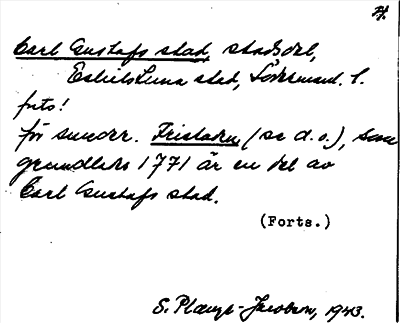 Carl Gustafs stad, stadsdel,
Eskilstuna stad, Södermanl. l.
för sunderr. Fristaden (se d. o.), som
grundlades 1771 är en del av
Carl Gustafs stad.
(Forts.)
S. Plaugs-Jacobson, 1943.